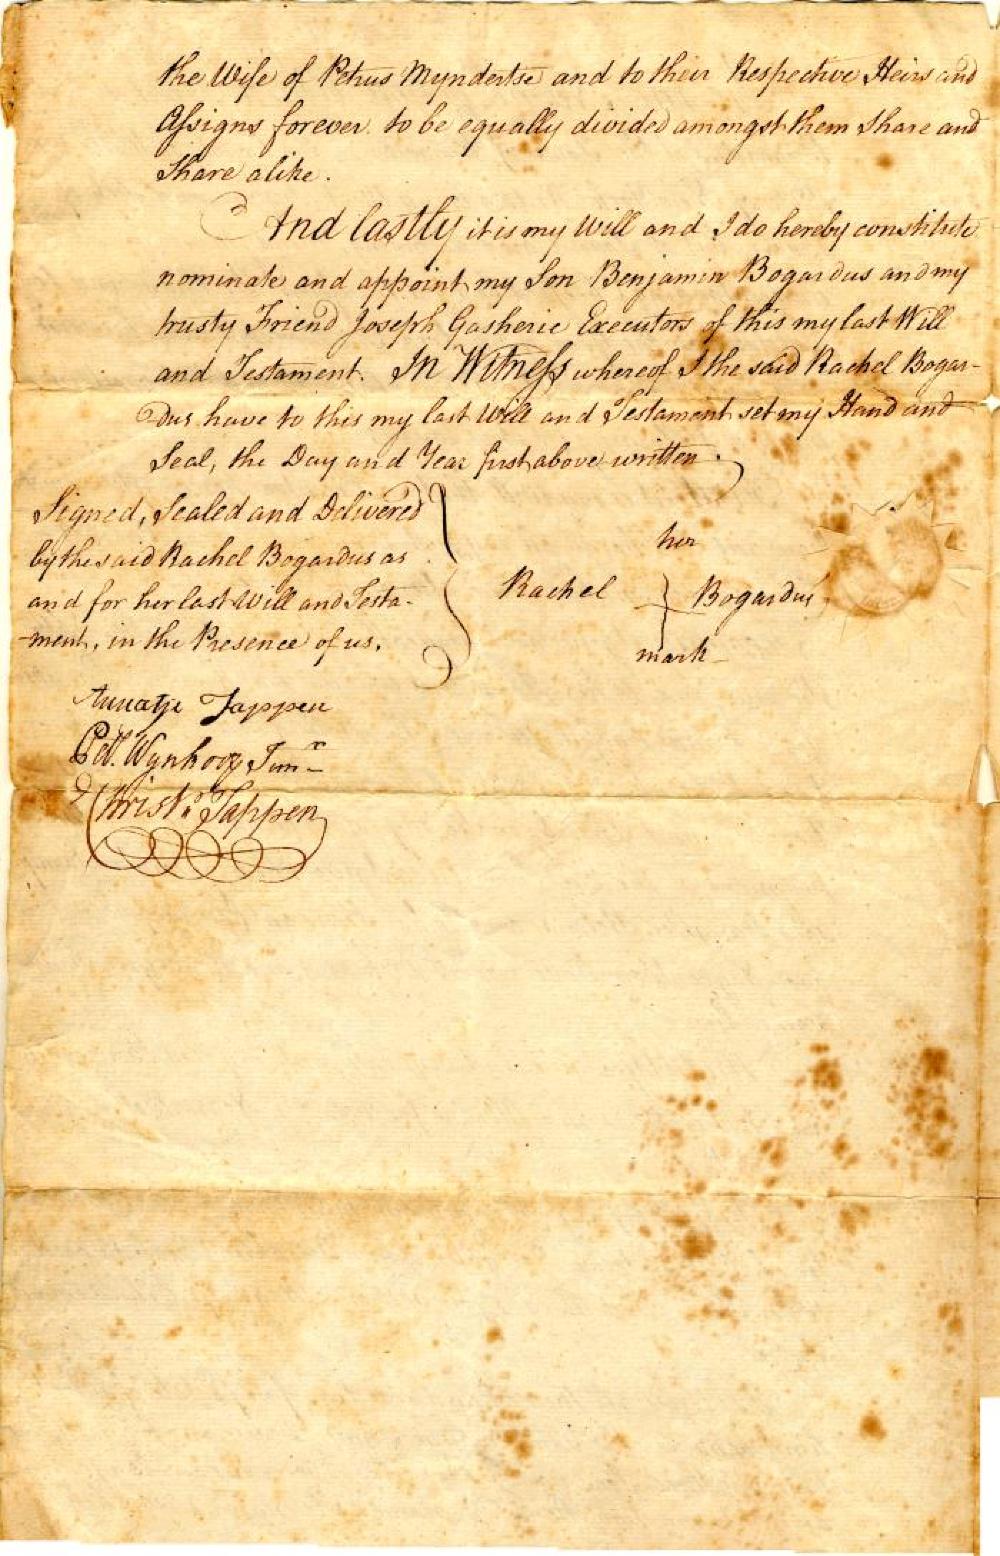 the Wife of Petrus Myndertse and to their Respective Heirs and
Assigns forever to be equally divided amongst them share and
share alike.
And lastly it is my Will and I do hereby constitute
nominate and appoint my Son Benjamin Bogardus and my
trusty Friend Joseph Gasherie Executors of this my last Will
and Testament. In Witness whereof I the said Rachel Bogar-
dus have to this my last Will and Testament set my Hand and
Seal, the Day and Year first above written.
Signed, Sealed and Delivered
by the said Rachel Bogardus as
and for her last Will and Testa-
ment, in the Presence of us.
her
Rachel Bogardus
mark
Annatje Tappen
Pet. Wynkoop Junr
Christr. Tappen